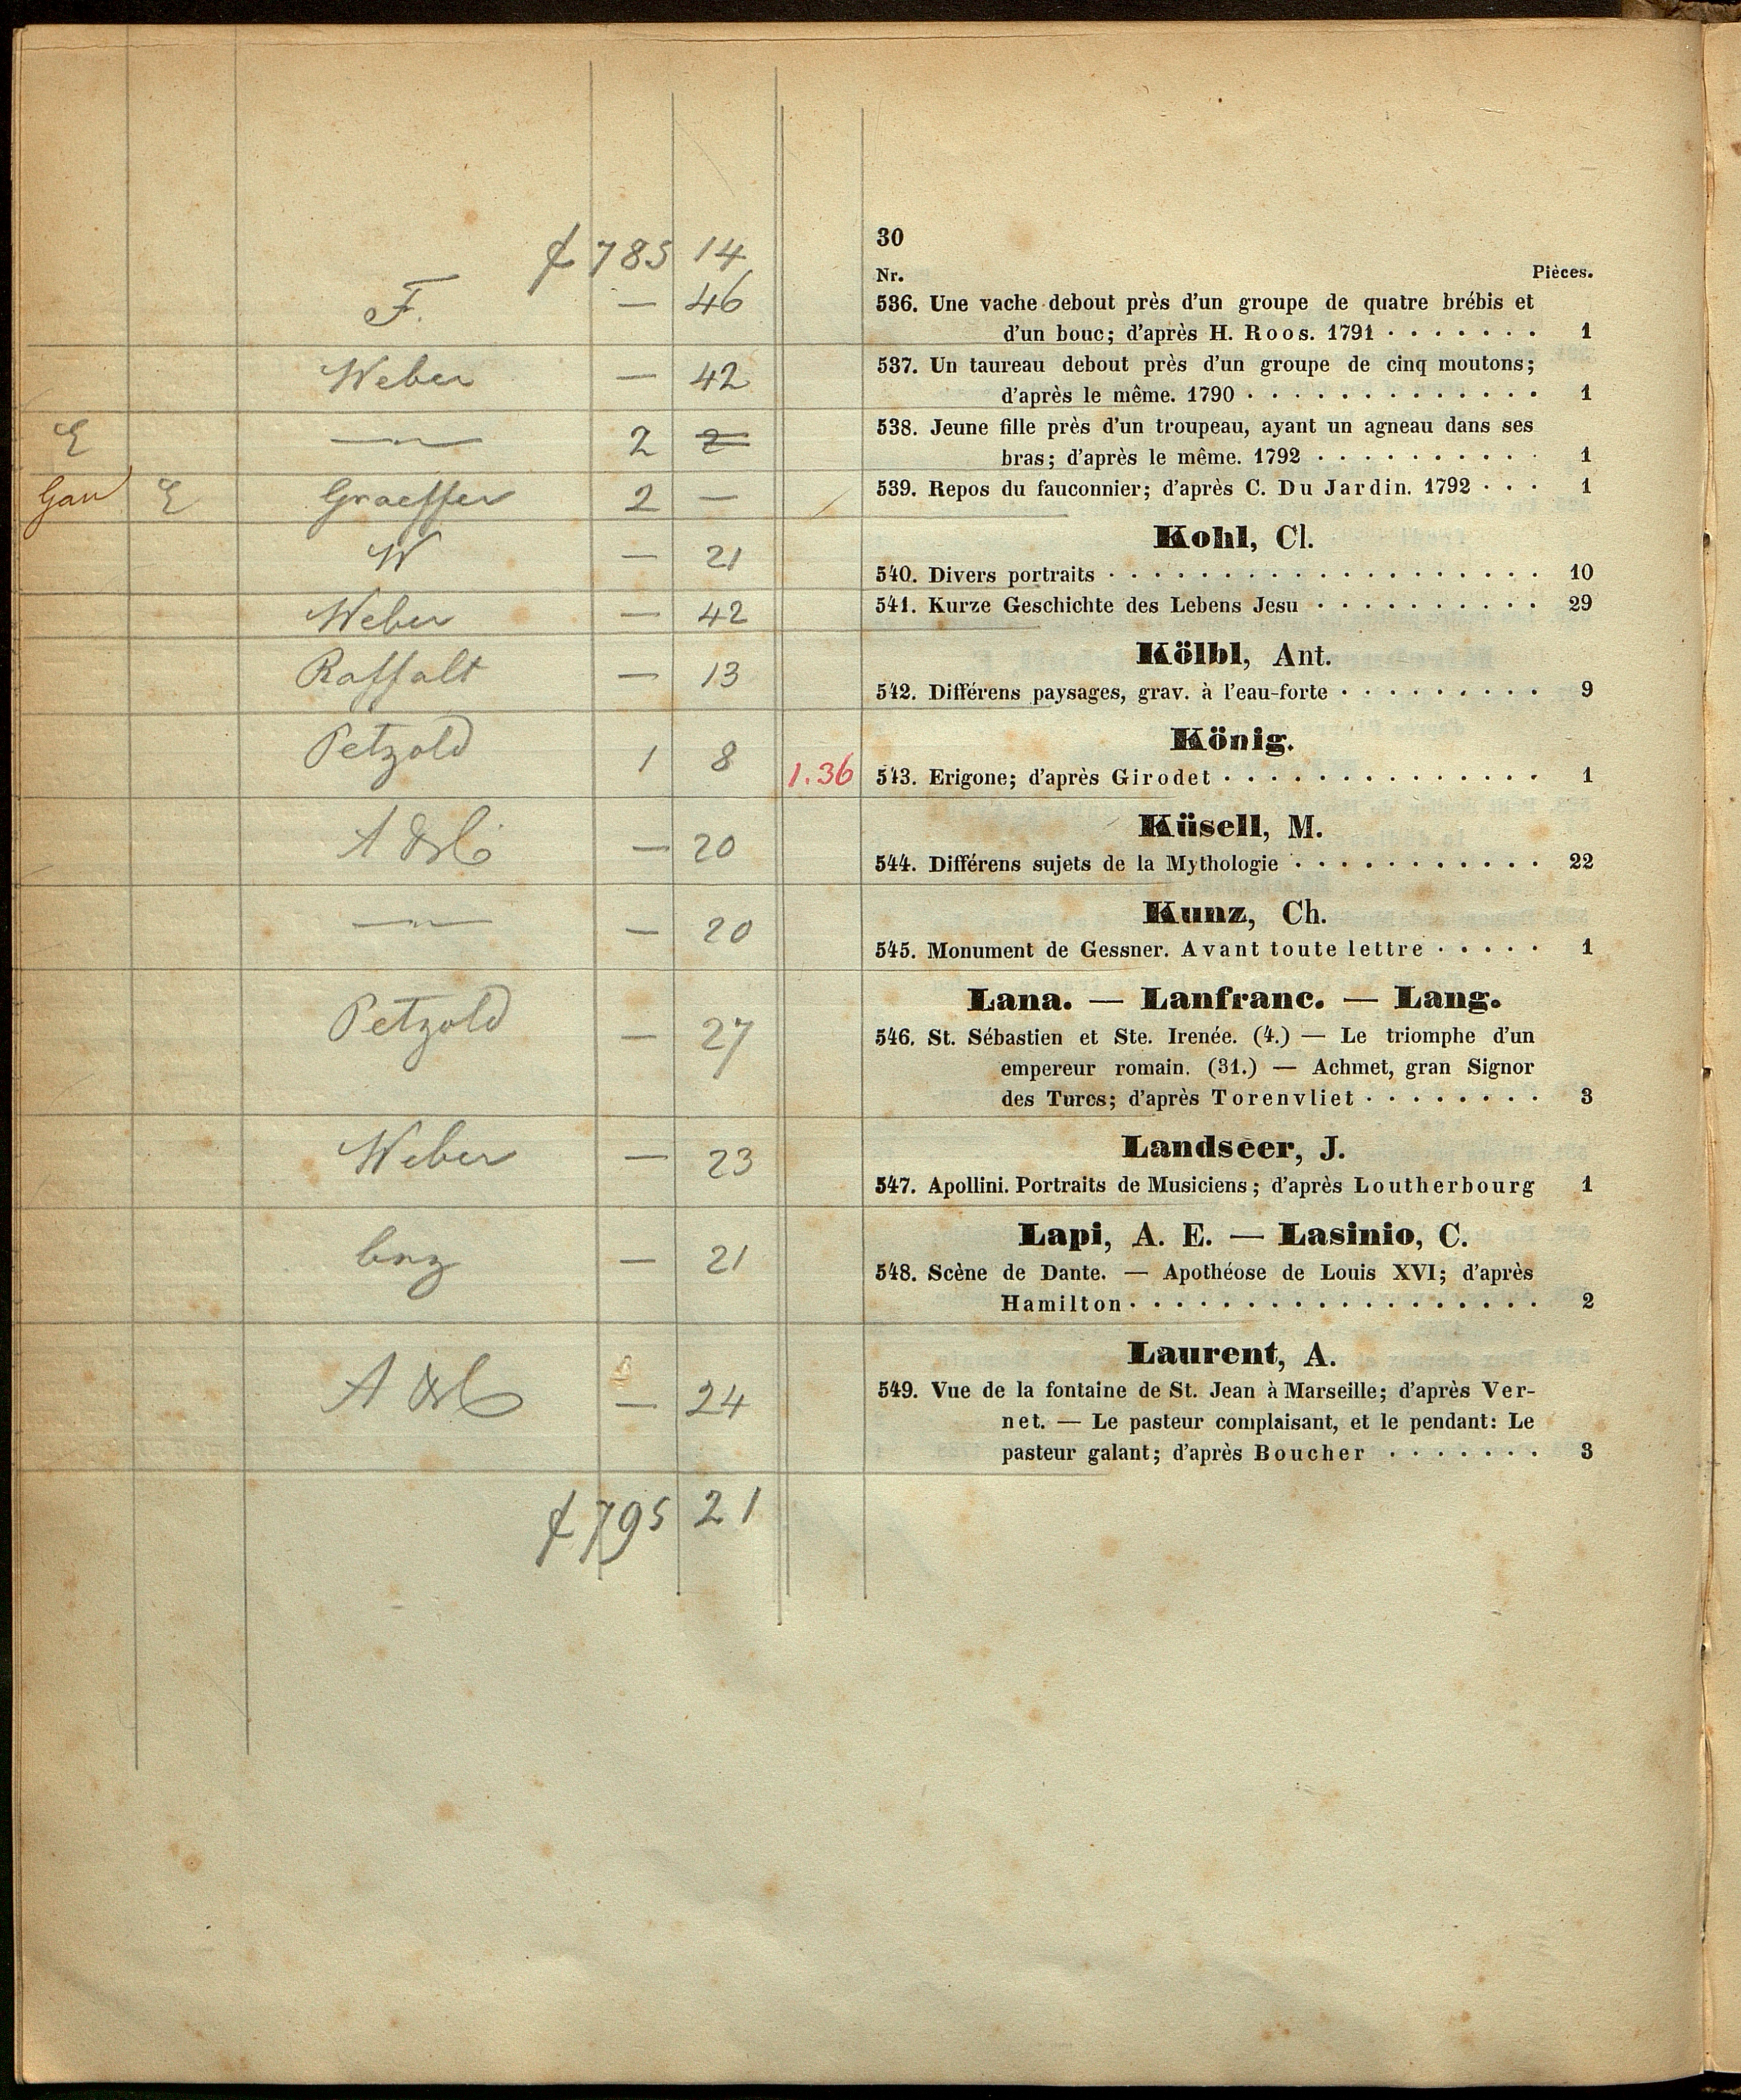 f 785 14
30
Nr. Pièces.
F. — 46
536. Une vache debout près d'un groupe de quatre brébis et
d'un bouc; d'après H. Roos. 1791 . . . . . . . 1
Weber — 42
537. Un taureau debout près d'un groupe de cinq moutons;
d'après le même. 1790 . . . . . . . . . . . . . 1
E —"— 2
538. Jeune fille près d'un troupeau, ayant un agneau dans ses
bras; d'après le même. 1792 . . . . . . . . . . 1
Gau E Graeffer 2 —
539. Repos du fauconnier; d'après C. Du Jardin. 1792 . . . 1
Kohl, Cl.
W — 21
540. Divers portraits . . . . . . . . . . . . . . . . . . . 10
Weber — 42
541. Kurze Geschichte des Lebens Jesu . . . . . . . . . . 29
Kölbl, Ant.
Raffalt — 13
542. Différens paysages, grav. à l'eau-forte . . . . . . . . . 9
König.
Petzold 1 8 1.36
543. Erigone; d'après Girodet . . . . . . . . . . . . . . 1
Küsell, M.
— 20
544. Différens sujets de la Mythologie . . . . . . . . . . . 22
Kunz, Ch.
—"— — 20
545. Monument de Gessner. Avant toute lettre . . . . . 1
Lana. — Lanfranc. — Lang.
Petzold — 27
546. St. Sébastien et Ste. Irenée. (4.) — Le triomphe d'un
empereur romain. (31.) — Achmet, gran Signor
des Turcs; d'après Torenvliet . . . . . . . . 3
Landseer, J.
Weber — 23
547. Apollini. Portraits de Musiciens; d'après Loutherbourg 1
Lapi, A. E. — Lasinio, C.
— 21
548. Scène de Dante. — Apothéose de Louis XVI; d'après
Hamilton . . . . . . . . . . . . . . . . . . 2
Laurent, A.
— 24
549. Vue de la fontaine de St. Jean à Marseille; d'après Ver-
net. — Le pasteur complaisant, et le pendant: Le
pasteur galant; d'après Boucher . . . . . . . 3
f 795 21